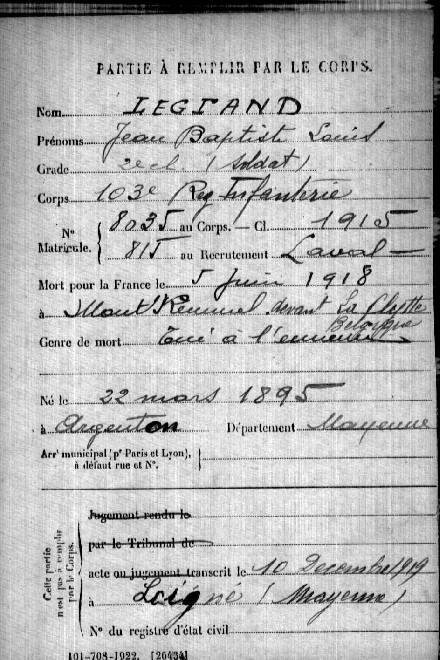 PARTIE À REMPLIR PAR LE CORPS.
Nom LEGRAND
Prénoms Jean Baptiste Louis
Grade 2e cl (soldat)
Corps 103e Reg Infanterie
N° Matricule. { 8035 au Corps. — Cl. 1915
815 au Recrutement Laval
Mort pour la France le 5 Juin 1918
à Mont Kemmel devant La Clytte
Belgique
Genre de mort Tué à l'ennemi
Né le 22 mars 1895
à Argenton Département Mayenne
Arrt municipal (pr Paris et Lyon), à défaut rue et N°.
Cette partie n'est pas à remplir par le Corps.
Jugement rendu le
par le Tribunal de
acte ou jugement transcrit le 10 Decembre 1919
à Loigné (Mayenne)
N° du registre d'état civil
101-708-1922. [26434]